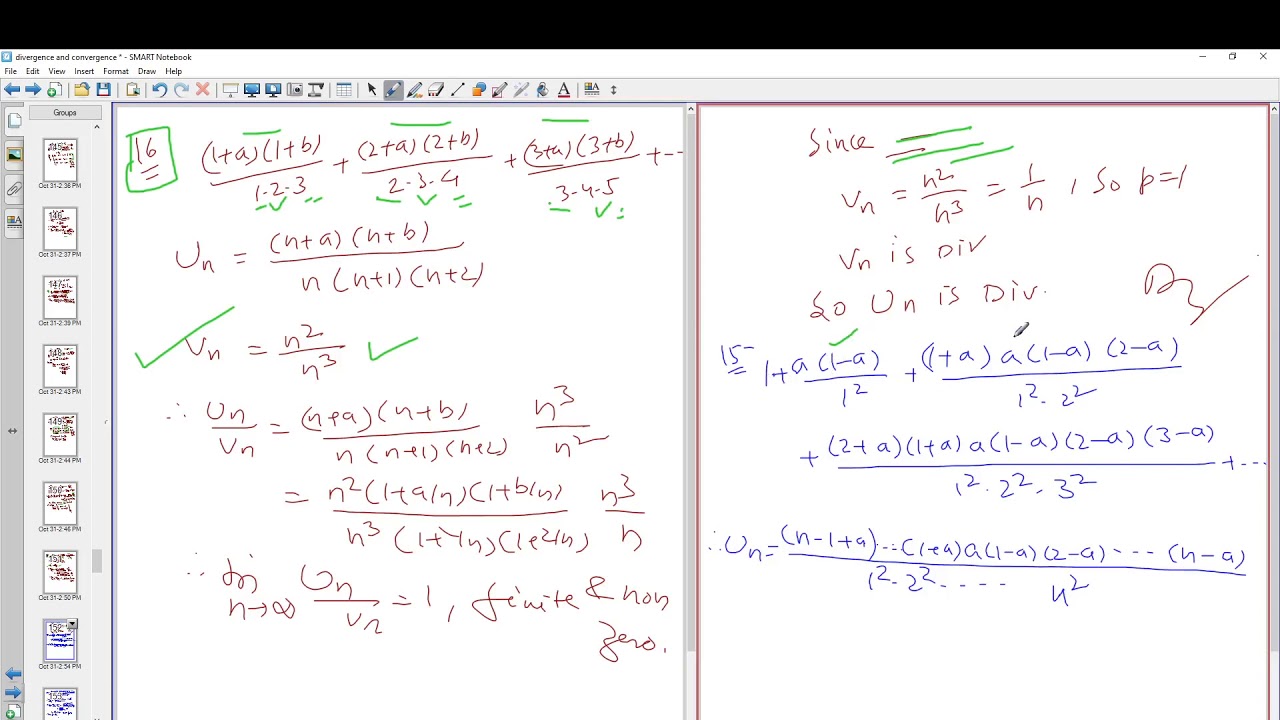 divergence and convergence * - SMART Notebook
File Edit View Insert Format Draw Help
Groups
Oct 31-2:36 PM
Oct 31-2:37 PM
147
Oct 31-2:39 PM
Oct 31-2:43 PM
149
Oct 31-2:44 PM
Oct 31-2:46 PM
Oct 31-2:50 PM
152
Oct 31-2:54 PM
16 (1+a)(1+b)/1-2-3 + (2+a)(2+b)/2-3-4 + (3+a)(3+b)/3-4-5 + ---
Un = (n+a)(n+b)/n(n+1)(n+2)
Vn = n²/n³
∴ Un/Vn = (n+a)(n+b)/n(n+1)(n+2) n³/n²
= n²(1+a/n)(1+b/n)/n³(1+1/n)(1+2/n) n³/n
∴ lim n→∞ Un/Vn = 1, finite & non
zero.
Since
Vn = n²/n³ = 1/n, So p=1
Vn is Div
So Un is Div.
15 1 + a(1-a)/1² + (1+a)a(1-a)(2-a)/1²·2²
+ (2+a)(1+a)a(1-a)(2-a)(3-a)/1²·2²·3² + ---
∴ Un = (n-1+a)---(1+a)a(1-a)(2-a)---(n-a)/1²·2²---- n²